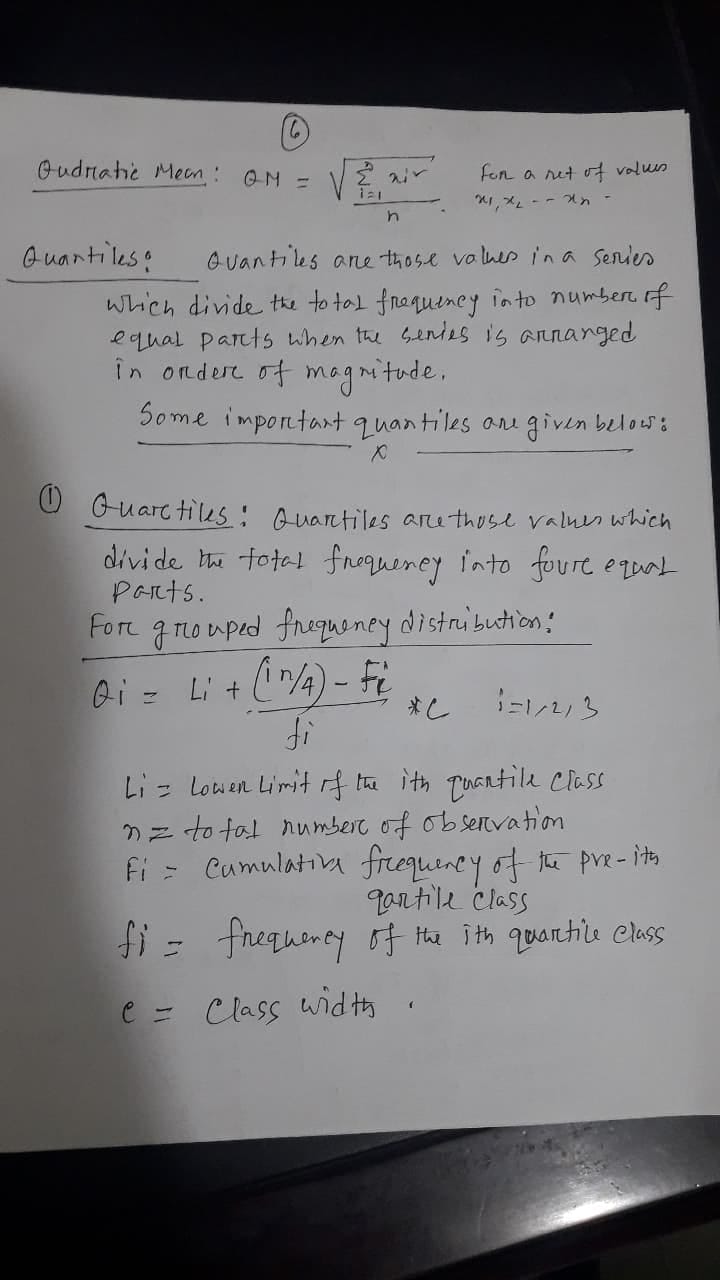 6
Qudratic Mean: QM = √ Σ i=1 n xi² / n . For a set of values
x1, x2 -- xn -
Quantiles: Quantiles are those values in a series
which divide the total frequency into number of
equal parts when the series is arranged
in order of magnitude.
Some important quantiles are given below:
x
① Quartiles: Quartiles are those values which
divide the total frequency into four equal
parts.
For grouped frequency distribution:
Qi = Li + (in/4) - Fi / fi * c i=1,2,3
Li = Lower Limit of the ith quartile class
n = total number of observation
Fi = Cumulative frequency of the pre-ith
qartile class
fi = frequency of the ith quartile class
c = Class width .